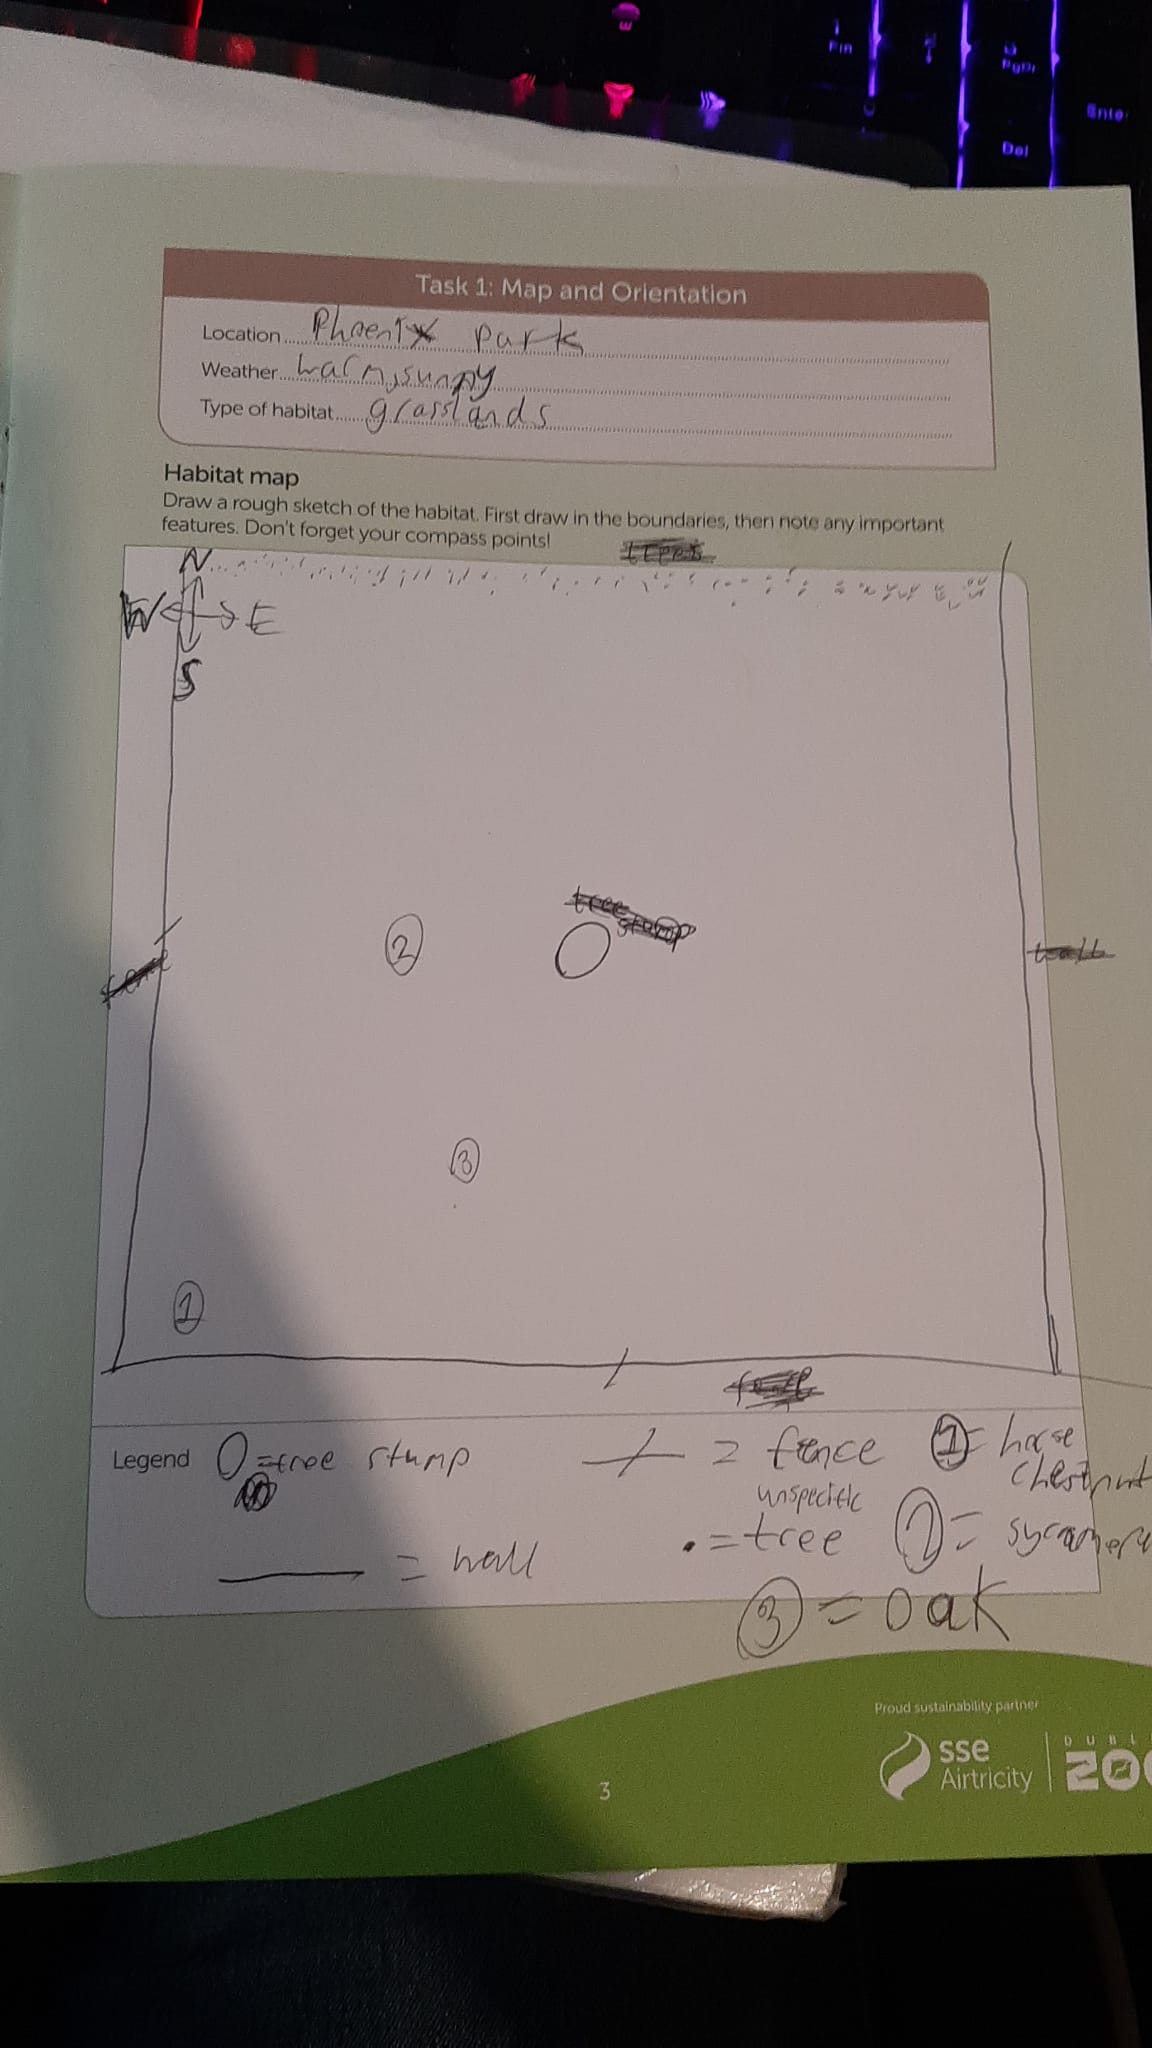 Fin
PgDn
Enter
Del
Task 1: Map and Orientation
Location Phoenix park
Weather warm, sunny
Type of habitat grasslands
Habitat map
Draw a rough sketch of the habitat. First draw in the boundaries, then note any important
features. Don't forget your compass points!
trees
N
W E
S
tree
stump
2
fence
wall
3
1
Legend O = tree stump
= fence
1 = horse
chestnut
unspecific
. = tree
2 = sycamore
= wall
3 = oak
Proud sustainability partner
sse
Airtricity
DUBL
ZOO
3